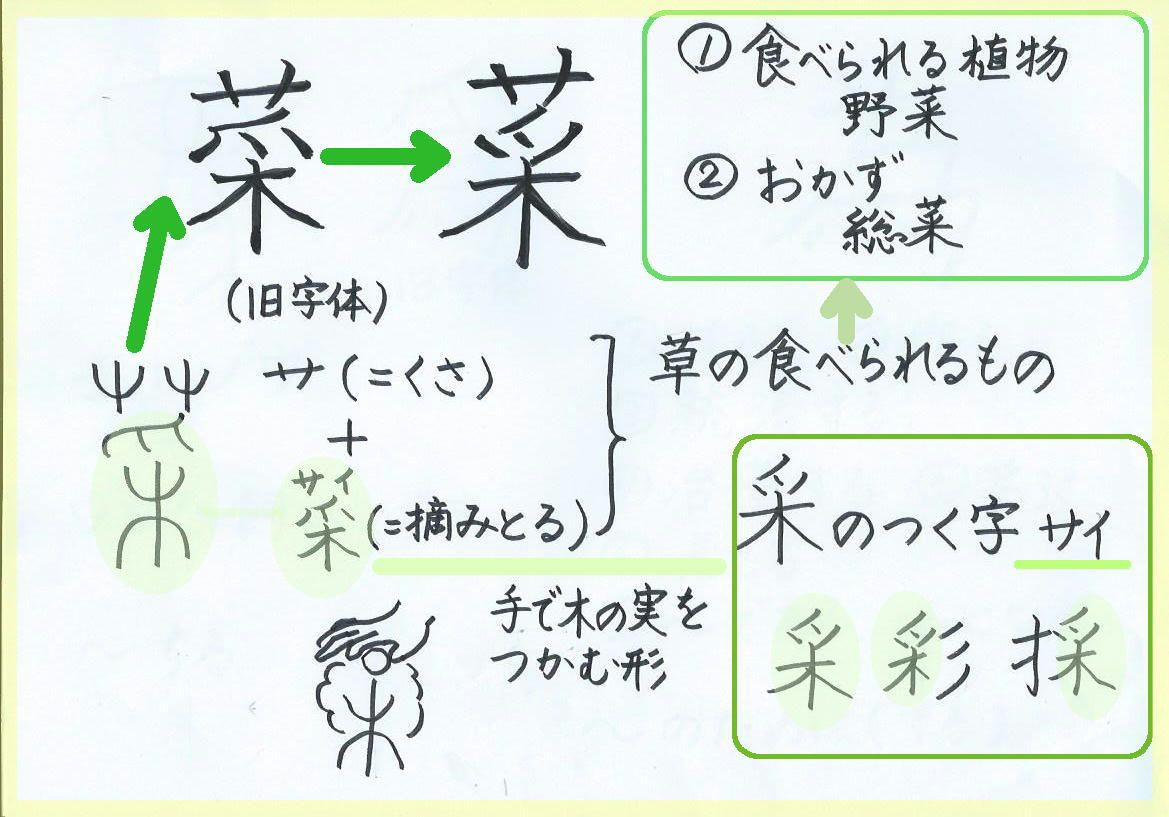 菜 → 菜
(旧字体)
① 食べられる植物
野菜
② おかず
総菜
艹(=くさ)
+
サイ
采(=摘みとる)
草の食べられるもの
手で木の実を
つかむ形
采のつく字 サイ
采 彩 採